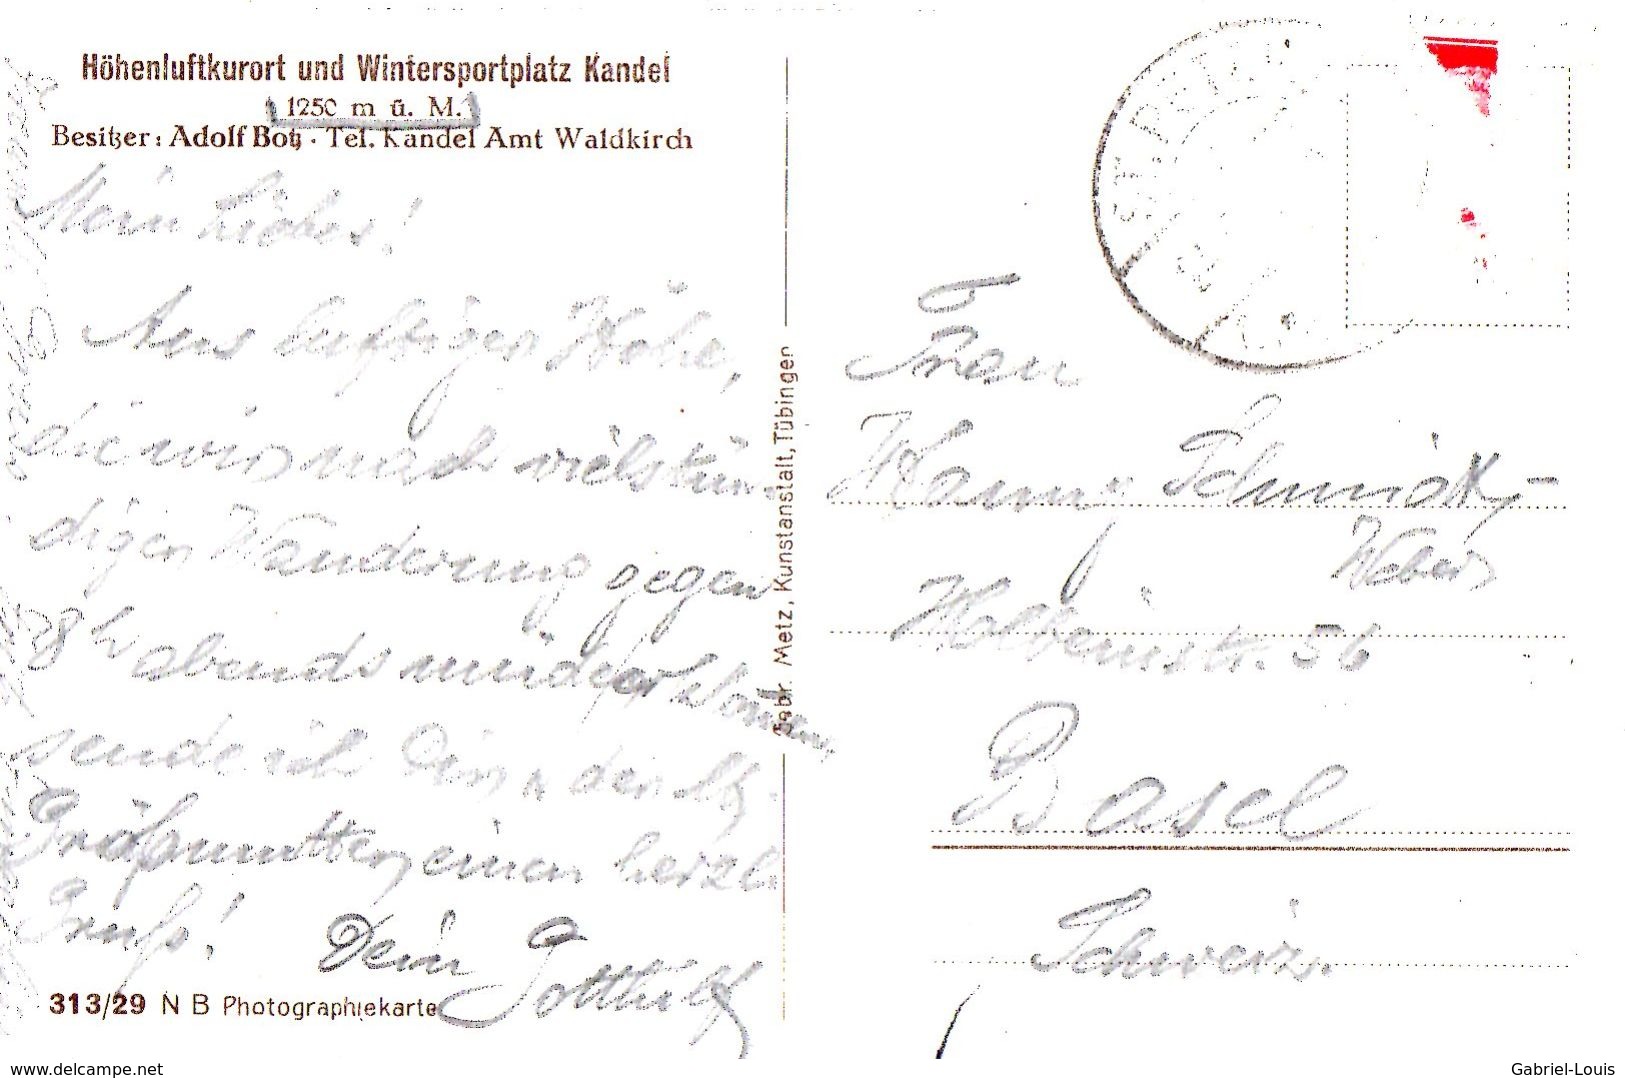 Höhenluftkurort und Wintersportplatz Kandel
(1250 m ü. M.)
Besitzer: Adolf Botz · Tel. Kandel Amt Waldkirch
Mein Liebes!
Aus luftiger Höhe,
die wir nach vielstün
diger Wanderung gegen
8h abends müde
sende ich Dir u. den
einen herzl.
Gruß! Dein Gotthilf
313/29 N B Photographiekarte
Gebr. Metz, Kunstanstalt, Tübingen
ST. PETER
Frau
Hanny Schmidt-
Weber
Holbeinstr. 56
Basel
Schweiz.
www.delcampe.net
Gabriel-Louis